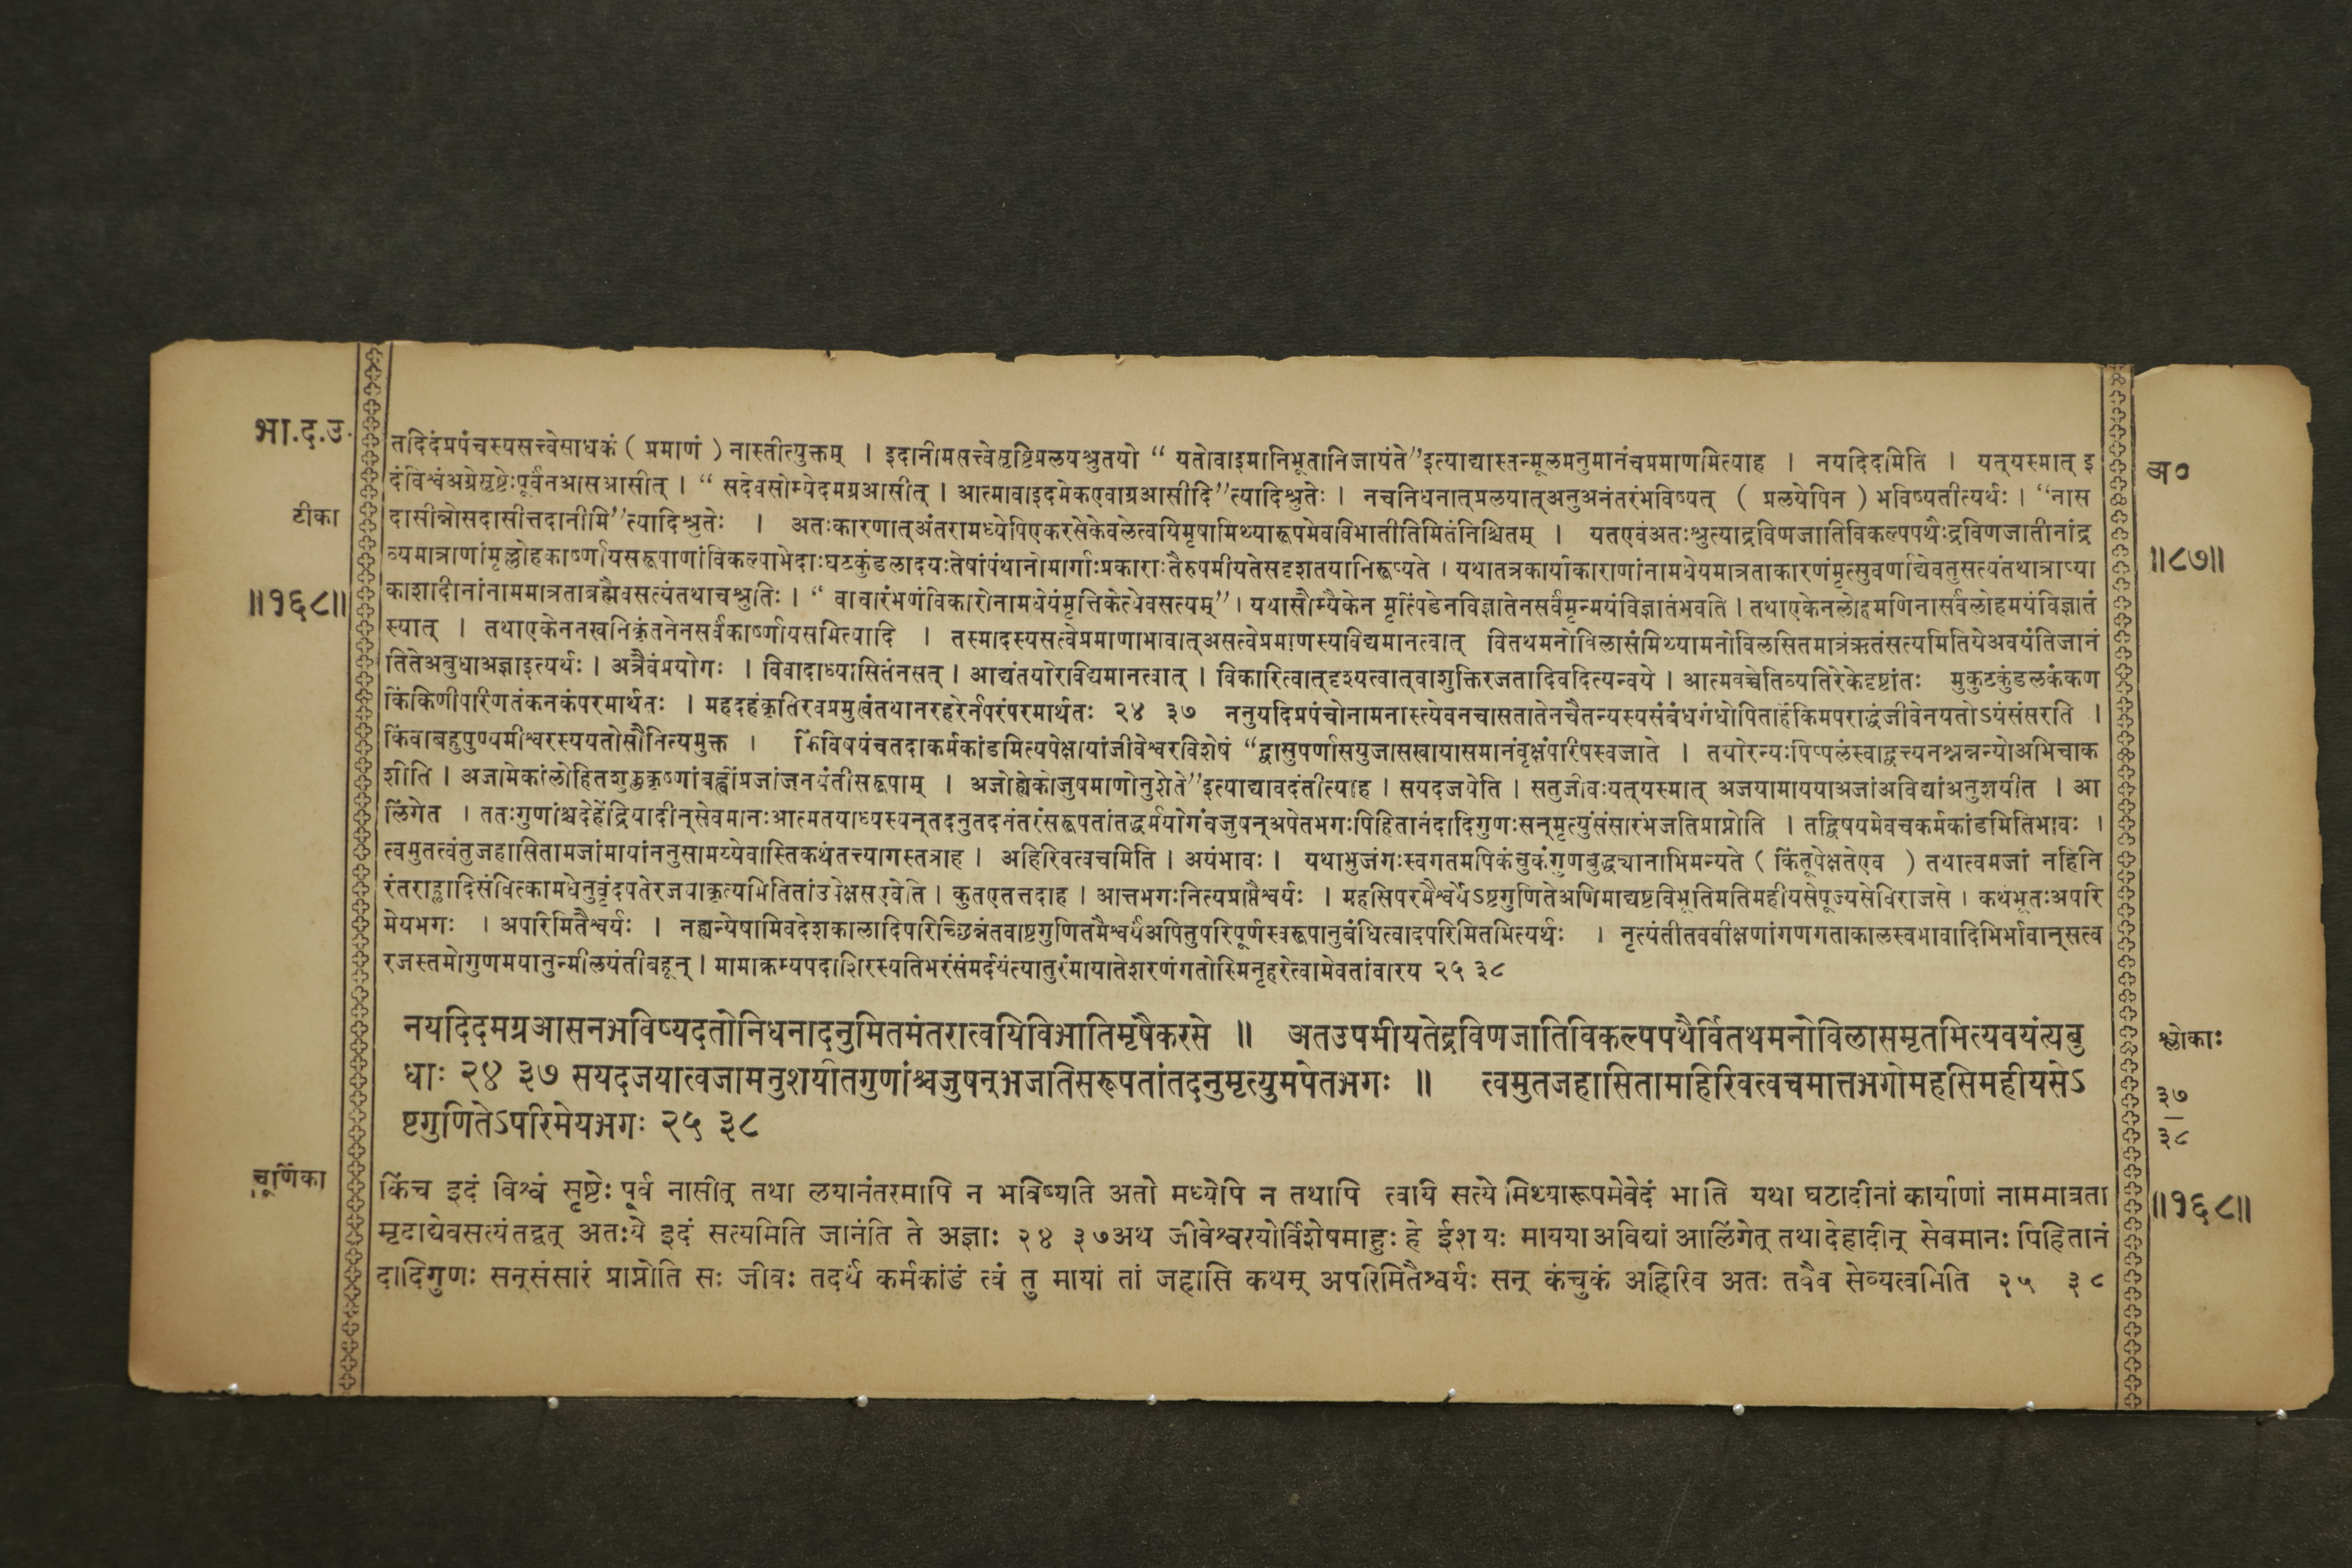 भा.द.उ.
तदिदंप्रपंचस्यसत्त्वेसाधकं ( प्रमाणं ) नास्तीत्युक्तम् । इदानीमसत्त्वेसृष्टिप्रलयश्रुतयो “ यतोवाइमानिभूतानिजायंते”इत्याद्यास्तन्मूलमनुमानंचप्रमाणमित्याह । नयदिदमिति । यत्यस्मात् इ
अ०
दंविश्वंअग्रेसृष्टेःपूर्वंनआसआसीत् । “ सदेवसोम्येदमग्रआसीत् । आत्मावाइदमेकएवाग्रआसीदि”त्यादिश्रुतेः । नचनिधनात्प्रलयात्अनुअनंतरंभविष्यत् ( प्रलयेपिन ) भविष्यतीत्यर्थः । “नास
टीका
दासीन्नोसदासीत्तदानीमि”त्यादिश्रुतेः । अतःकारणात्अंतरामध्येपिएकरसेकेवलेत्वयिमृषामिथ्यारूपमेवविभातीतिमितंनिश्चितम् । यतएवंअतःश्रुत्याद्रविणजातिविकल्पपथैःद्रविणजातीनांद्र
॥८७॥
व्यमात्राणांमृल्लोहकार्ष्णायसरूपाणांविकल्पाभेदाःघटकुंडलादयःतेषांपंथानोमार्गाःप्रकाराःतैरुपमीयतेसदृशतयानिरूप्यते । यथातत्रकार्याकाराणांनामधेयमात्रताकारणंमृत्सुवर्णाद्येवतुसत्यंतथात्राप्या
॥१६८॥
काशादीनांनाममात्रताब्रह्मैवसत्यंतथाचश्रुतिः । “ वाचारंभणंविकारोनामधेयंमृत्तिकेत्येवसत्यम्” । यथासौम्यैकेन मृत्पिंडेनविज्ञातेनसर्वंमृन्मयंविज्ञातंभवति । तथाएकेनलोहमणिनासर्वंलोहमयंविज्ञातं
स्यात् । तथाएकेननखनिकृंतनेनसर्वंकार्ष्णायसमित्यादि । तस्मादस्यसत्वेप्रमाणाभावात्असत्वेप्रमाणस्यविद्यमानत्वात् वितथमनोविलासंमिथ्यामनोविलसितमात्रंऋतंसत्यमितियेअवयंतिजानं
तितेअबुधाअज्ञाइत्यर्थः । अत्रैवंप्रयोगः । विवादाध्यासितंनसत् । आद्यंतयोरविद्यमानत्वात् । विकारित्वात्दृश्यत्वात्वाशुक्तिरजतादिवदित्यन्वये । आत्मवच्चेतिव्यतिरेकेदृष्टांतः मुकुटकुंडलकंकण
किंकिणीपरिणतंकनकंपरमार्थतः । महदहंकृतिखप्रमुखंतथानरहरेर्नपरंपरमार्थतः २४ ३७ ननुयदिप्रपंचोनामनास्त्येवनचासतातेनचैतन्यस्यसंबंधगंधोपितार्हिकिमपराद्धंजीवेनयतोऽयंसंसरति ।
किंवाबहुपुण्यमीश्वरस्ययतोसौनित्यमुक्त । किंविषयंचतदाकर्मकांडमित्यपेक्षायांजीवेश्वरविशेषं “द्वासुपर्णासयुजासखायासमानंवृक्षंपरिषस्वजाते । तयोरन्यःपिप्पलंस्वाद्वत्त्यनश्नन्नन्योअभिचाक
शीति । अजामेकांलोहितशुक्लकृष्णांबह्वींप्रजांजनयंतींसरूपाम् । अजोह्येकोजुषमाणोनुशेते”इत्याद्यावदंतीत्याह । सयदजयेति । सतुजीवःयत्यस्मात् अजयामाययाअजांअविद्यांअनुशयीत । आ
लिंगेत । ततःगुणांश्चदेहेंद्रियादीन्सेवमानःआत्मतयाध्यस्यन्तदनुतदनंतरंसरूपतांतद्धर्मयोगंचजुषन्अपेतभगःपिहितानंदादिगुणःसन्मृत्युंसंसारंभजतिप्राप्नोति । तद्विषयमेवचकर्मकांडमितिभावः ।
त्वमुतत्वंतुजहासितामजांमायांननुसामय्येवास्तिकथंतत्त्यागस्तत्राह । अहिरिवत्वचमिति । अयंभावः । यथाभुजंगःस्वगतमपिकंचुकंगुणबुद्ध्यानाभिमन्यते ( किंतूपेक्षतेएव ) तथात्वमजां नहिनि
रंतराह्लादिसंवित्कामधेनुवृंदपतेरजयाकृत्यमितितांउपेक्षसएवेति । कुतएतत्तदाह । आत्तभगःनित्यप्राप्तैश्वर्यः । महसिपरमैश्वर्येऽष्टगुणितेअणिमाद्यष्टविभूतिमतिमहीयसेपूज्यसेविराजसे । कथंभूतःअपरि
मेयभगः । अपरिमितैश्वर्यः । नह्यन्येषामिवदेशकालादिपरिच्छिन्नंतवाष्टगुणितमैश्वर्यंअपितुपरिपूर्णस्वरूपानुबंधित्वादपरिमितमित्यर्थः । नृत्यंतीतववीक्षणांगणगताकालस्वभावादिभिर्भावान्सत्व
रजस्तमोगुणमयानुन्मीलयंतीबहून् । मामाक्रम्यपदाशिरस्यतिभरंसंमर्दयंत्यातुरंमायातेशरणंगतोस्मिनृहरेत्वामेवतांवारय २५ ३८
नयदिदमग्रआसनभविष्यदतोनिधनादनुमितमंतरात्वयिविभातिमृषैकरसे ॥ अतउपमीयतेद्रविणजातिविकल्पपथैर्वितथमनोविलासमृतमित्यवयंत्यबु
श्लोकाः
धाः २४ ३७ सयदजयात्वजामनुशयीतगुणांश्चजुषन्भजतिसरूपतांतदनुमृत्युमपेतभगः ॥ त्वमुतजहासितामाहिरिवत्वचमात्तभगोमहसिमहीयसेऽ
३७
ष्टगुणितेऽपरिमेयभगः २५ ३८
३८
चूर्णिका
किंच इदं विश्वं सृष्टेः पूर्वं नासीत् तथा लयानंतरमपि न भविष्यति अतो मध्येपि न तथापि त्वयि सत्ये मिथ्यारूपमेवेदं भाति यथा घटादीनां कार्याणां नाममात्रता
॥१६८॥
मृदाद्येवसत्यंतद्वत् अतःये इदं सत्यमिति जानंति ते अज्ञाः २४ ३७अथ जीवेश्वरयोर्विशेषमाहुः हे ईश यः मायया अविद्यां आलिंगेत् तथा देहादीन् सेवमानः पिहितानं
दादिगुणः सन्संसारं प्राप्नोति सः जीवः तदर्थं कर्मकांडं त्वं तु मायां तां जहासि कथम् अपरिमितैश्वर्यः सन् कंचुकं अहिरिव अतः तवैव सेव्यत्वमिति २५ ३८